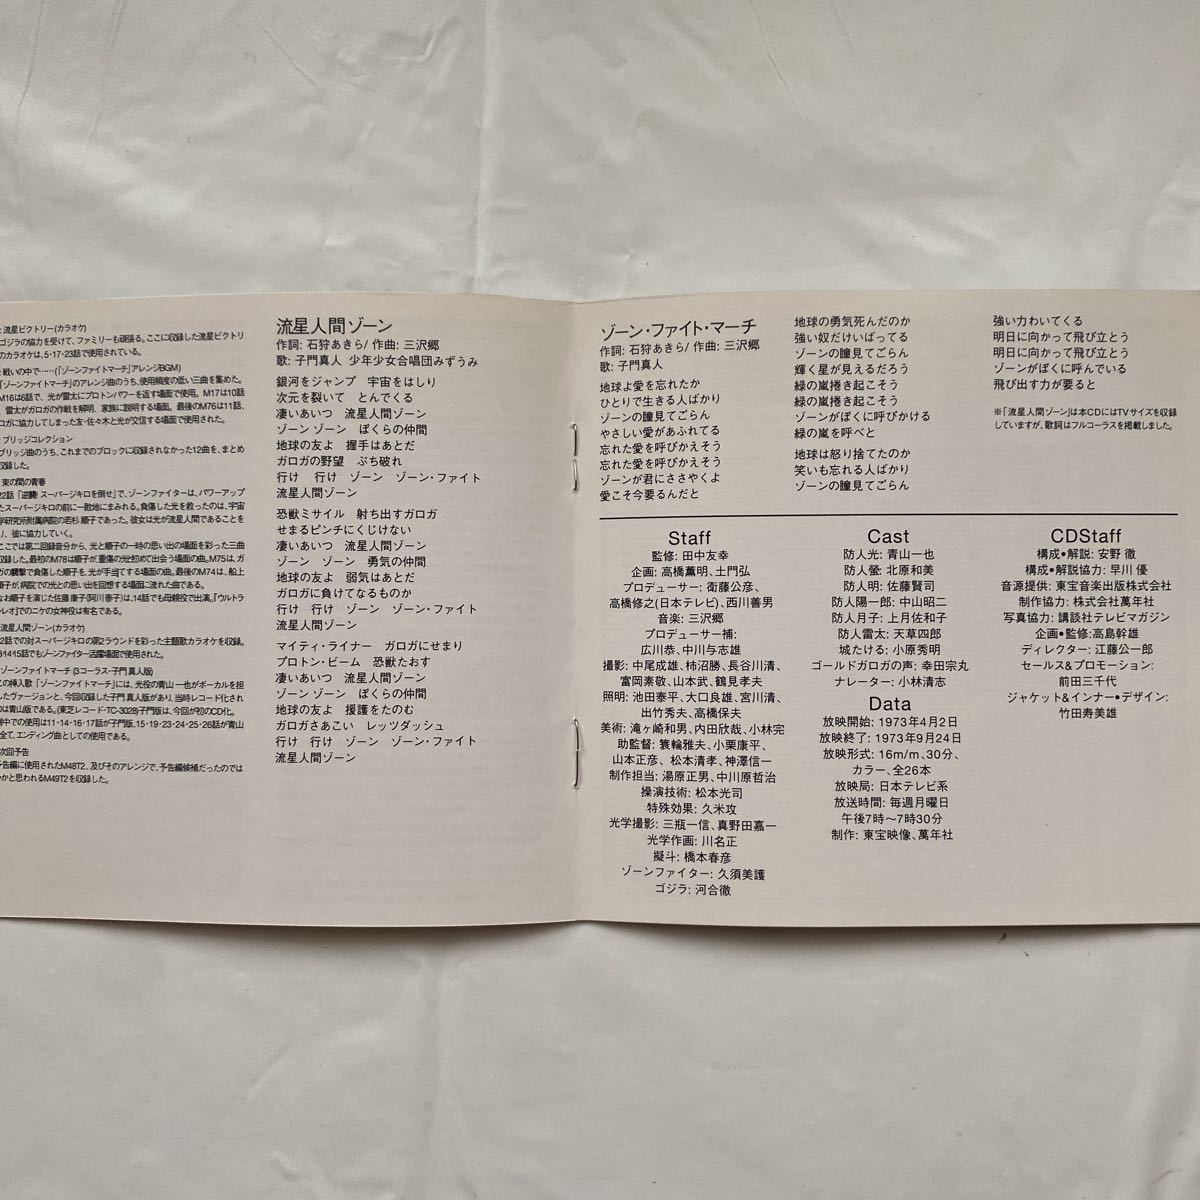 :流星ビクトリー(カラオケ)
ゴジラの協力を受けて、ファミリーも頑張る。ここに収録した流星ビクトリ
のカラオケは、5・17・23話で使用されている。
:戦いの中で……(「ゾーンファイトマーチ」アレンジBGM)
「ゾーンファイトマーチ」のアレンジ曲のうち、使用頻度の低い三曲を集めた。
M16は6話で、光が雷太にプロトンパワーを返す場面で使用。M17は10話
、雷太がガロガの作戦を解明、家族に説明する場面。最後のM76は11話、
ロガに協力してしまった友・佐々木と光が交信する場面で使用された。
:ブリッジコレクション
ブリッジ曲のうち、これまでのブロックに収録されなかった12曲を、まとめ
収録した。
束の間の青春
22話「逆襲!スーパージキロを倒せ」で、ゾーンファイターは、パワーアップ
たスーパージキロの前に一敗地にまみれる。負傷した光を救ったのは、宇宙
学研究所附属病院の若杉順子であった。彼女は光が流星人間であることを
り、彼に協力していく。
ここでは第二回録音分から、光と順子の一時の思い出の場面を彩った三曲
収録した。最初のM78は順子が、重傷の光と初めて出会う場面の曲。M75は、ガ
ガの襲撃で負傷した順子を、光が手当てする場面の曲。最後のM74は、船上
順子が、病院での光との思い出を回想する場面に流れた曲である。
なお順子を演じた佐藤康子(阿川泰子)は、14話でも母親役で出演。『ウルトラ
レオ』でのニケの女神役は有名である。
流星人間ゾーン(カラオケ)
2話での対スーパージキロの第2ラウンドを彩った主題歌カラオケを収録。
81415話でもゾーンファイター活躍場面で使用された。
ゾーンファイトマーチ(3コーラス・子門真人版)
この挿入歌「ゾーンファイトマーチ」には、光役の青山一也がボーカルを担
たヴァージョンと、今回収録した子門真人版があり、当時レコード化され
のは青山版である。(東芝レコード・TC-3028)子門版は、今回が初のCD化。
劇中での使用は11・14・16・17話が子門版、15・19・23・24・25・26話が青山
全て、エンディング曲としての使用である。
次回予告
告編に使用されたM48T2、及びそのアレンジで、予告編候補だったのでは
いかと思われるM49T2を収録した。
流星人間ゾーン
作詞:石狩あきら/作曲:三沢郷
歌:子門真人 少年少女合唱団みずうみ
銀河をジャンプ 宇宙をはしり
次元を裂いて とんでくる
凄いあいつ 流星人間ゾーン
ゾーン ゾーン ぼくらの仲間
地球の友よ 握手はあとだ
ガロガの野望 ぶち破れ
行け 行け ゾーン ゾーン・ファイト
流星人間ゾーン
恐獣ミサイル 射ち出すガロガ
せまるピンチにくじけない
凄いあいつ 流星人間ゾーン
ゾーン ゾーン 勇気の仲間
地球の友よ 弱気はあとだ
ガロガに負けてなるものか
行け 行け ゾーン ゾーン・ファイト
流星人間ゾーン
マイティ・ライナー ガロガにせまり
プロトン・ビーム 恐獣たおす
凄いあいつ 流星人間ゾーン
ゾーン ゾーン ぼくらの仲間
地球の友よ 援護をたのむ
ガロガさあこい レッツダッシュ
行け 行け ゾーン ゾーン・ファイト
流星人間ゾーン
ゾーン・ファイト・マーチ
作詞:石狩あきら/作曲:三沢郷
歌:子門真人
地球よ愛を忘れたか
ひとりで生きる人ばかり
ゾーンの瞳見てごらん
やさしい愛があふれてる
忘れた愛を呼びかえそう
忘れた愛を呼びかえそう
ゾーンが君にささやくよ
愛こそ今要るんだと
地球の勇気死んだのか
強い奴だけいばってる
ゾーンの瞳見てごらん
輝く星が見えるだろう
緑の嵐捲き起こそう
緑の嵐捲き起こそう
ゾーンがぼくに呼びかける
緑の嵐を呼べと
地球は怒り捨てたのか
笑いも忘れる人ばかり
ゾーンの瞳見てごらん
強い力わいてくる
明日に向かって飛び立とう
明日に向かって飛び立とう
ゾーンがぼくに呼んでいる
飛び出す力が要ると
※「流星人間ゾーン」は本CDにはTVサイズを収録
していますが、歌詞はフルコーラスを掲載しました。
Staff
監修:田中友幸
企画:高橋薫明、土門弘
プロデューサー:衛藤公彦、
高橋修之(日本テレビ)、西川善男
音楽:三沢郷
プロデューサー補:
広川恭、中川与志雄
撮影:中尾成雄、柿沼勝、長谷川清、
富岡素敬、山本武、鶴見孝夫
照明:池田泰平、大口良雄、宮川清、
出竹秀夫、高橋保夫
美術:滝ヶ崎和男、内田欣哉、小林完
助監督:簑輪雅夫、小栗康平、
山本正彦、松本清孝、神澤信一
制作担当:湯原正男、中川原哲治
操演技術:松本光司
特殊効果:久米攻
光学撮影:三瓶一信、真野田嘉一
光学作画:川名正
擬斗:橋本春彦
ゾーンファイター:久須美護
ゴジラ:河合徹
Cast
防人光:青山一也
防人螢:北原和美
防人明:佐藤賢司
防人陽一郎:中山昭二
防人月子:上月佐和子
防人雷太:天草四郎
城たける:小原秀明
ゴールドガロガの声:幸田宗丸
ナレーター:小林清志
Data
放映開始:1973年4月2日
放映終了:1973年9月24日
放映形式:16m/m、30分、
カラー、全26本
放映局:日本テレビ系
放送時間:毎週月曜日
午後7時〜7時30分
制作:東宝映像、萬年社
CDStaff
構成•解説:安野 徹
構成•解説協力:早川 優
音源提供:東宝音楽出版株式会社
制作協力:株式会社萬年社
写真協力:講談社テレビマガジン
企画•監修:高島幹雄
ディレクター:江藤公一郎
セールス&プロモーション:
前田三千代
ジャケット&インナー•デザイン:
竹田寿美雄